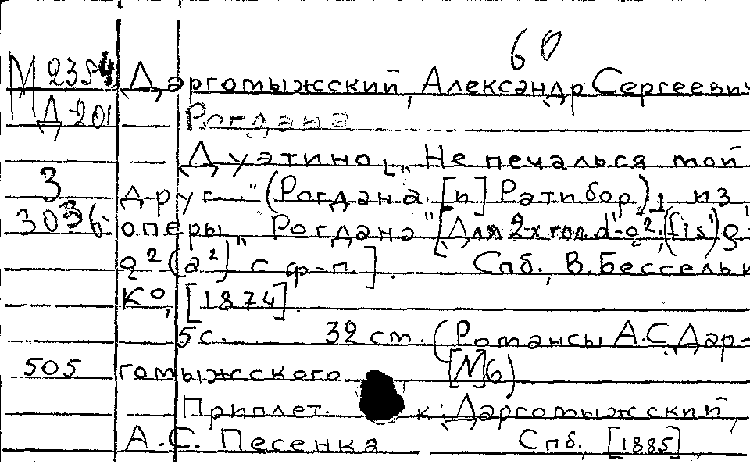 60
М 2354 Даргомыжский, Александр Сергеевич
Д-201 Рогдана
Дуэтино „Не печалься мой
3 друг—" (Рогдана [и] Ратибор), из
3036 оперы „Рогдана" [Для 2х гол. d'-g²; (fis')g'-
g²(a²) с ф-п.]. Спб., В. Бессель и
К°, [1874].
5с. 32 cm. (Романсы А.С. Дар-
505 гомыжского [№6)
Приплет. к: Даргомыжский,
А.С. Песенка Спб., [1885]